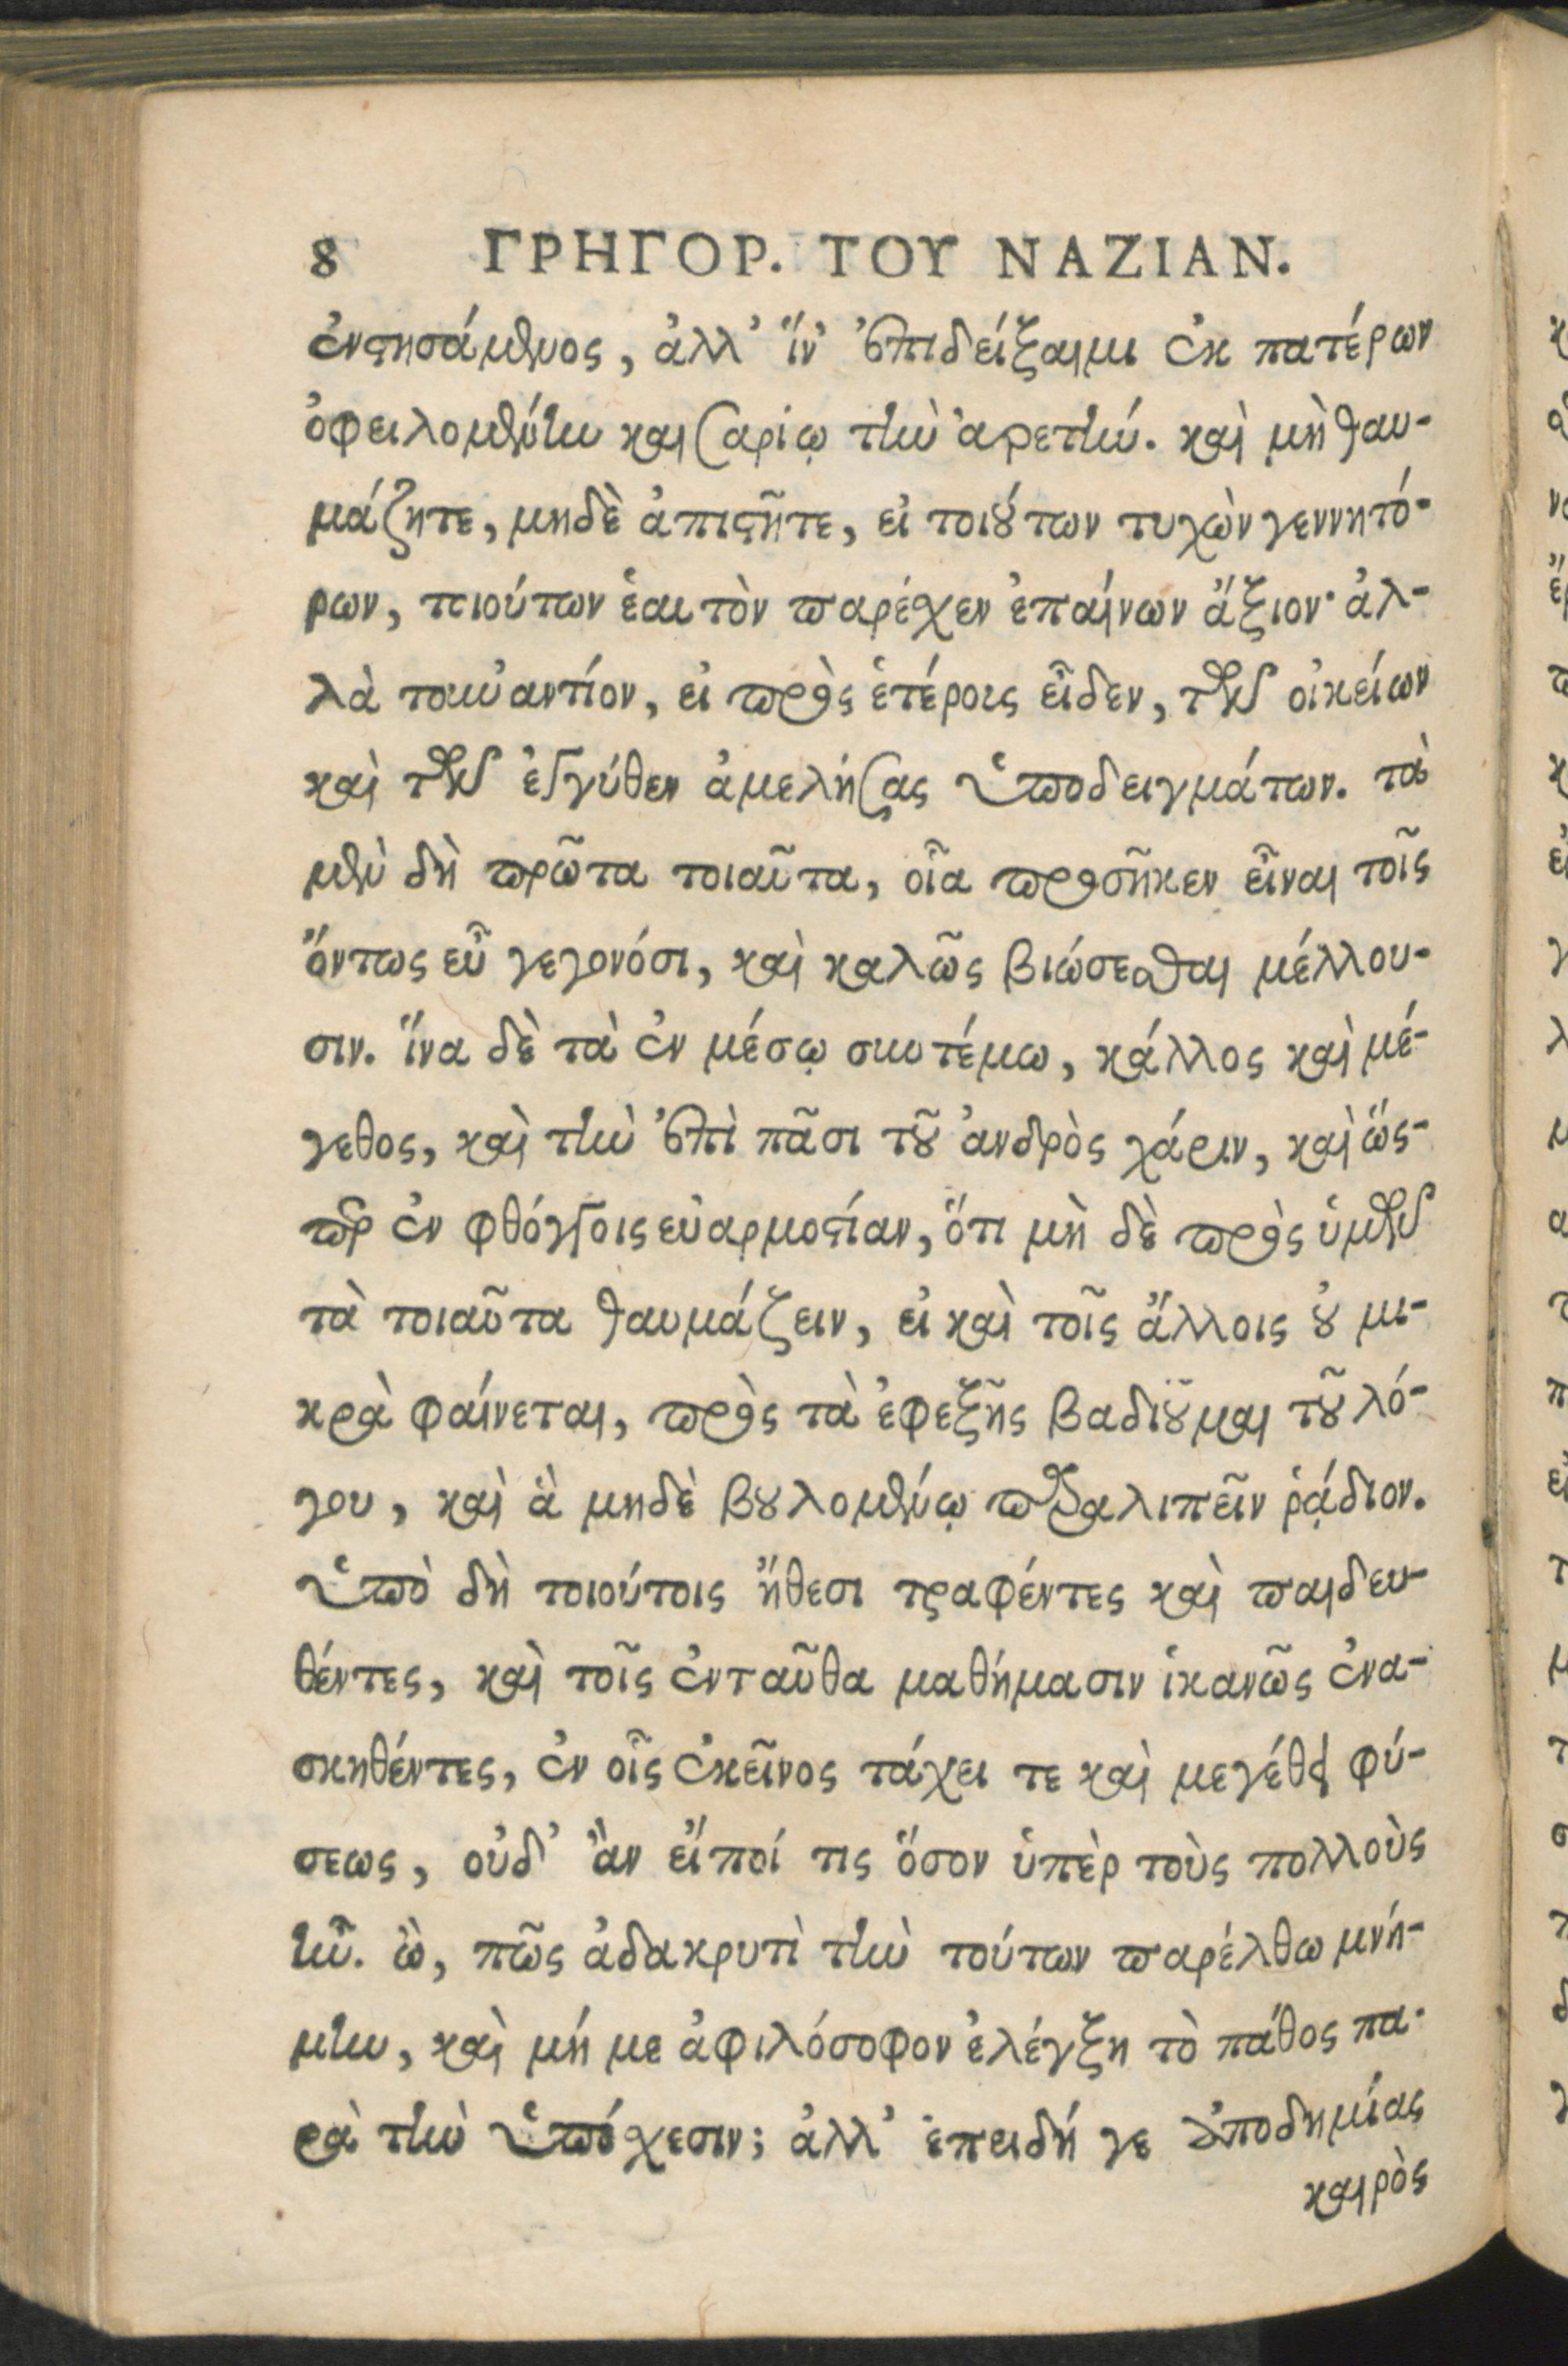 8 ΓΡΗΓΟΡ. ΤΟΥ ΝΑΖΙΑΝ.
ἐνστησάμενος, ἀλλ' ἵν' ἐπιδείξαιμι ἐκ πατέρων
ὀφειλομένην καισαρίῳ τὴν ἀρετήν. καὶ μὴ θαυ-
μάζητε, μηδὲ ἀπιστῆτε, εἰ τοιούτων τυχὼν γεννητό-
ρων, τοιούτων ἑαυτὸν παρέχεν ἐπαίνων ἄξιον· ἀλ-
λὰ τουναντίον, εἰ πρὸς ἑτέρους εἶδεν, τῶν οἰκείων
καὶ τῶν ἐγγύθεν ἀμελήσας ὑποδειγμάτων. τὰ
μὲν δὴ πρῶτα τοιαῦτα, οἷα προσῆκεν εἶναι τοῖς
ὄντως εὖ γεγονόσι, καὶ καλῶς βιώσεσθαι μέλλου-
σιν. ἵνα δὲ τὰ ἐν μέσῳ συντέμω, κάλλος καὶ μέ-
γεθος, καὶ τὴν ἐπὶ πᾶσι τοῦ ἀνδρὸς χάριν, καὶ ὥς-
περ ἐν φθόγγοις εὐαρμοστίαν, ὅτι μὴ δὲ πρὸς ὑμῶν
τὰ τοιαῦτα θαυμάζειν, εἰ καὶ τοῖς ἄλλοις οὐ μι-
κρὰ φαίνεται, πρὸς τὰ ἐφεξῆς βαδιοῦμαι τοῦ λό-
γου, καὶ ἃ μηδὲ βουλομένῳ παραλιπεῖν ῥᾴδιον.
Ὑπὸ δὴ τοιούτοις ἤθεσι τραφέντες καὶ παιδευ-
θέντες, καὶ τοῖς ἐνταῦθα μαθήμασιν ἱκανῶς ἐνα-
σκηθέντες, ἐν οἷς ἐκεῖνος τάχει τε καὶ μεγέθει φύ-
σεως, οὐδ' ἂν εἴποί τις ὅσον ὑπὲρ τοὺς πολλοὺς
ἦν. ὢ, πῶς ἀδακρυτὶ τὴν τούτων παρέλθω μνή-
μην, καὶ μή με ἀφιλόσοφον ἐλέγξη τὸ πάθος πα-
ρὰ τὴν ὑπόχεσιν; ἀλλ' ἐπειδή γε ἀποδημίας
καιρὸς